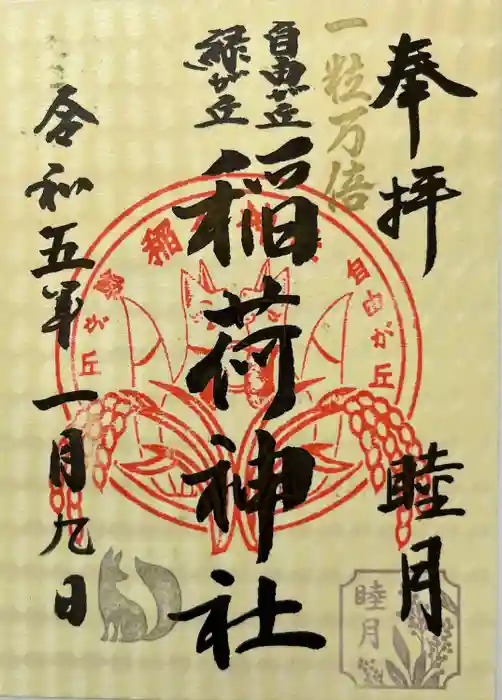 奉拝
睦月
睦月
一粒万倍
自由が丘
緑が丘
稲荷神社
稲荷
自由が丘
緑が丘
令和五年一月九日